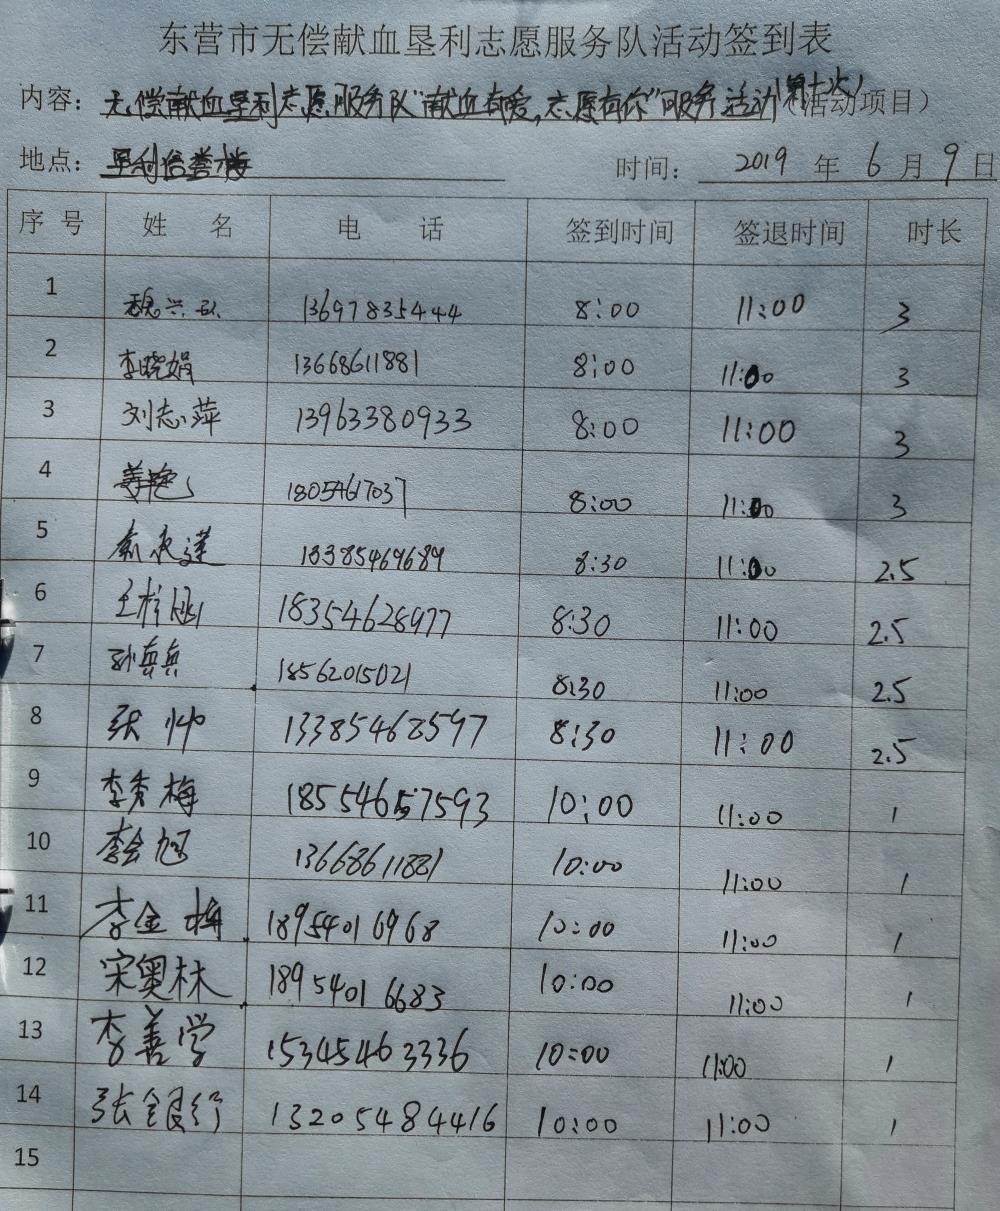 东营市无偿献血垦利志愿服务队活动签到表
内容：无偿献血垦利志愿服务队“献血有爱，志愿有你”服务活动（第十次）（活动项目）
地点：垦利信誉楼 时间： 2019 年 6 月 9 日
序 号 姓 名 电 话 签到时间 签退时间 时长
1 魏兴 13697835444 8:00 11:00 3
2 李晓娟 13668611881 8:00 11:00 3
3 刘志萍 13963380933 8:00 11:00 3
4 姜艳 18054617037 8:00 11:00 3
5 13385469689 8:30 11:00 2.5
6 王梓涵 18354628977 8:30 11:00 2.5
7 孙兵兵 18562015021 8:30 11:00 2.5
8 张帅 13385462597 8:30 11:00 2.5
9 李秀梅 18554657593 10:00 11:00 1
10 李会旭 13668611881 10:00 11:00 1
11 李金梅 18954016968 10:00 11:00 1
12 宋奥林 18954016683 10:00 11:00 1
13 李善学 15345463336 10:00 11:00 1
14 张银行 13205484416 10:00 11:00 1
15